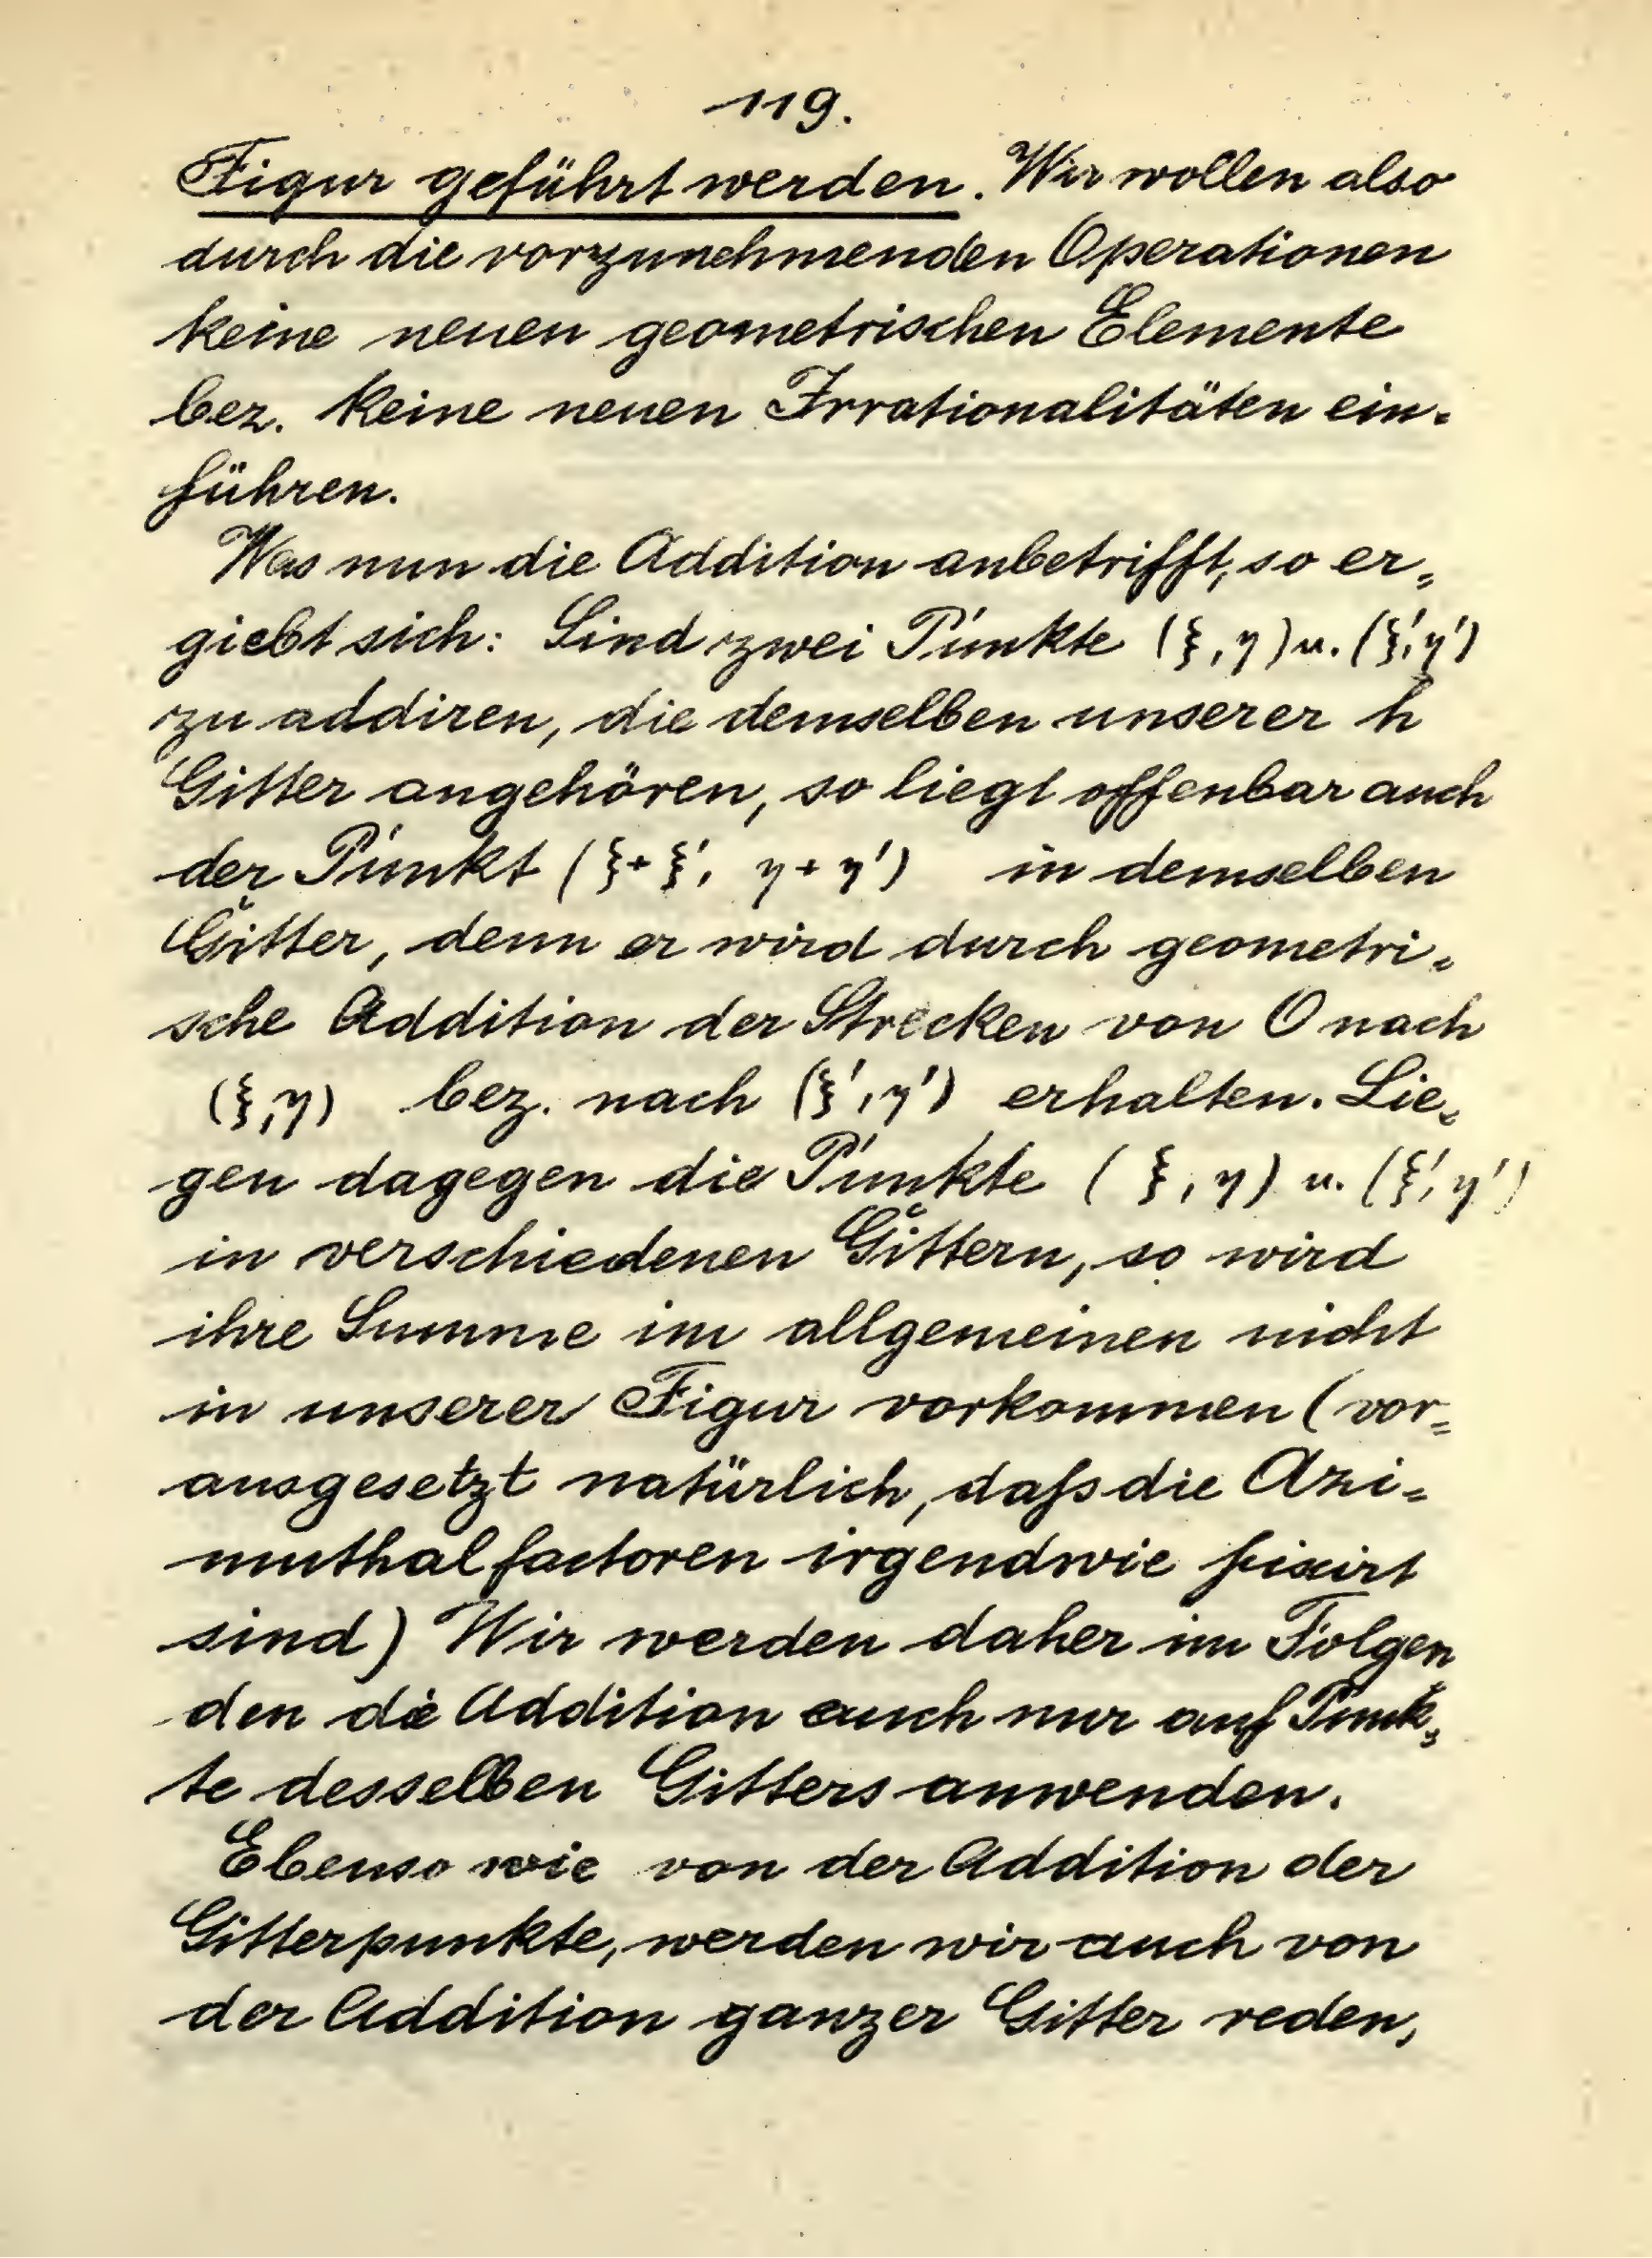 119.
Figur geführt werden. Wir wollen also
durch die vorzunehmenden Operationen
keine neuen geometrischen Elemente
bez. keine neuen Irrationalitäten ein-
führen.
Was nun die Addition anbetrifft, so er-
giebt sich: Sind zwei Punkte (ξ, η) u. (ξ', η')
zu addiren, die demselben unserer h
Gitter angehören, so liegt offenbar auch
der Punkt (ξ + ξ', η + η') in demselben
Gitter, denn er wird durch geometri-
sche Addition der Strecken von O nach
(ξ, η) bez. nach (ξ', η') erhalten. Lie-
gen dagegen die Punkte (ξ, η) u. (ξ', η')
in verschiedenen Gittern, so wird
ihre Summe im allgemeinen nicht
in unserer Figur vorkommen (vor-
ausgesetzt natürlich, daſs die Azi-
muthalfactoren irgendwie fixirt
sind) Wir werden daher im Folgen
den die Addition auch nur auf Punk-
te desselben Gitters anwenden.
Ebenso wie von der Addition der
Gitterpunkte, werden wir auch von
der Addition ganzer Gitter reden,